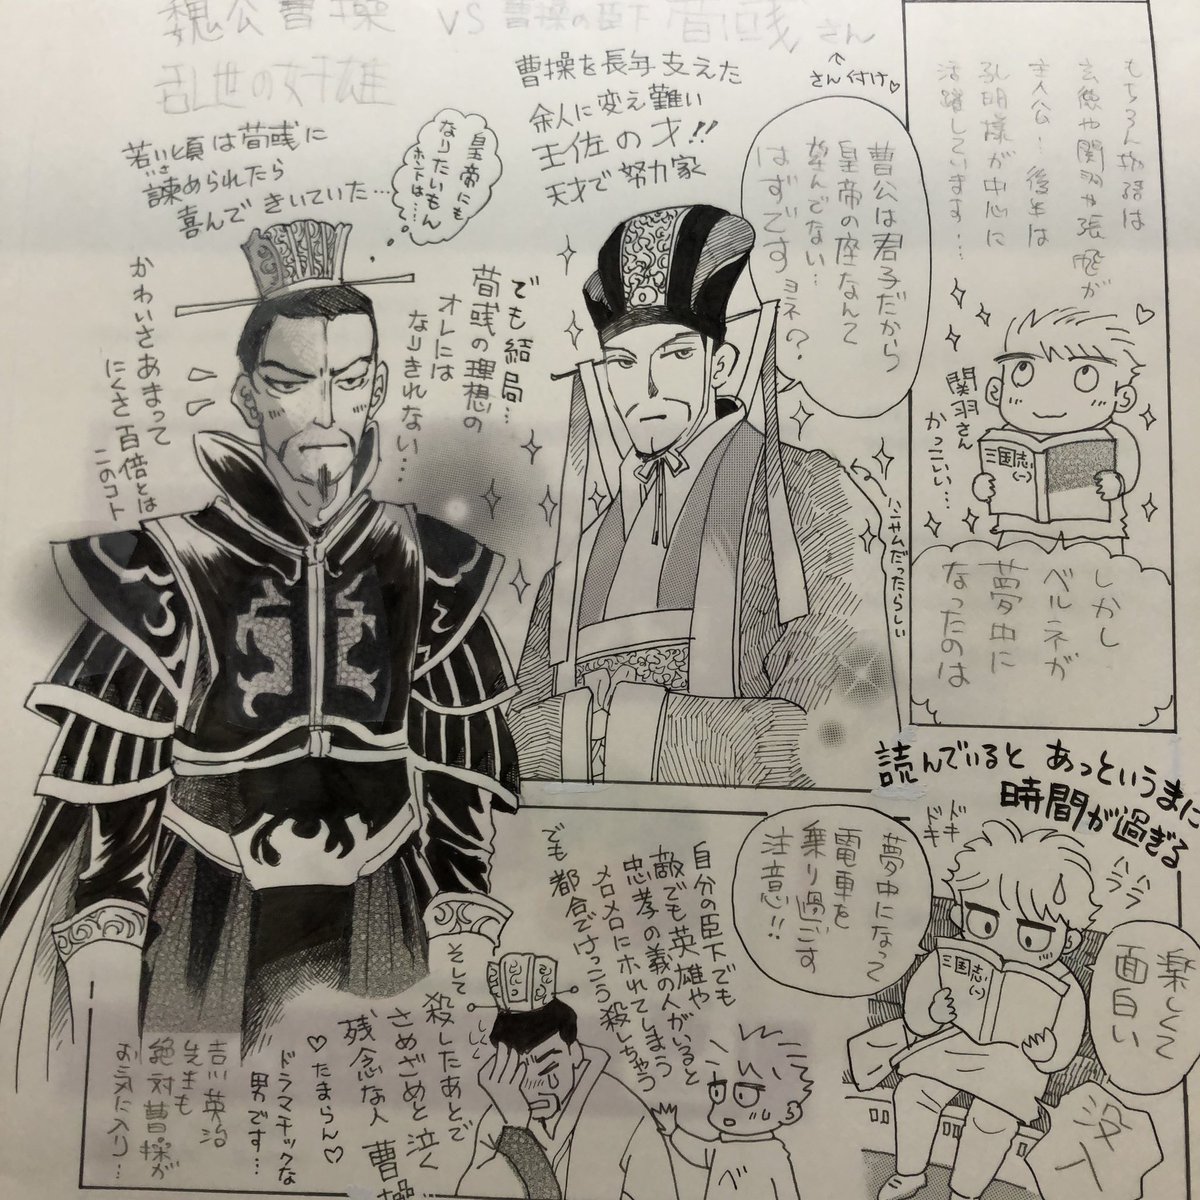 魏公曹操 VS 曹操の臣下 荀彧さん
乱世の奸雄
↑
さん付け♡
もちろん物語は
玄徳や関羽や張飛が
主人公!後半は
孔明様が中心に
活躍しています…
関羽さん
かっこいい…
三国志(一)
しかし
ベルネが
夢中に
なったのは
曹操を長年支えた
余人に変え難い
王佐の才!!
天才で努力家
曹公は君子だから
皇帝の座なんて
望んでない…
はずです
ヨネ?
ハンサムだったらしい
皇帝にも
なりたいもん
ホントは…
若い頃は荀彧に
諫められたら
喜んできいていた…
でも結局…
荀彧の理想の
オレには
なりきれない…
かわいさあまって
にくさ百倍とは
このコト
読んでいると あっというまに
時間が過ぎる
ドキ
ドキ
ハラ
ハラ
楽しくて
面白い
三国志(一)
夢中になって
電車を
乗り過ごす
注意!!
自分の臣下でも
敵でも英雄や
忠孝の義の人がいると
メロメロにホれてしまう
でも都合でけっこう殺しちゃう
ベ
しくしく
そして
殺したあとで
さめざめと泣く
残念な人 曹操…
♡たまらん♡
ドラマチックな
男です…
吉川英治
先生も
絶対曹操が
お気に入り…